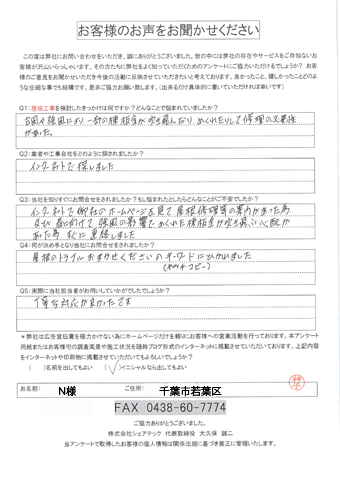 お客様のお声をお聞かせください
この度は弊社にお問い合わせをいただき、誠にありがとうございました。世の中には弊社の存在やサービスをご存知ないお
客様が沢山いらっしゃいます。その方たちに弊社をよく知っていただくためのアンケートにご協力いただけるでしょうか？お客
様のご意見をお聞かせいただき今後の活動に反映させていただきたいと考えております。良かったこと、嬉しかったことどのよ
うな些細な事でも結構です。是非ご協力お願い致します。（出来るだけ具体的に書いていただければ幸いです）
Q1：屋根工事を検討したきっかけは何ですか？どんなことで悩まれていましたか？
台風や強風により一部の棟板金が吹き飛んだり めくれたりして修理の必要性
があった。
Q2：業者や工事会社をどのように探されましたか？
インターネットで探しました
Q3：当社を知りすぐにお問合せをされましたか？もし悩まれたとしたらどんなことがご不安でしたか？
インターネットで御社のホームページを見て屋根修理等の案内があった為
強風の影響でめくれた棟板金が吹き飛ぶ心配が
あった為 すぐに連絡しました
Q4：何が決め手となり当社にお問合せをされましたか？
屋根のトラブルおまかせくださいのキーワードにひかれました
(キャッチコピー)
Q5：実際に当社担当者がお伺いしていかがでしたでしょうか？
丁寧な対応が良かったです
＊弊社は広告宣伝費を極力かけない為にホームページだけを頼りにお客様への営業活動を行っております。本アンケート
用紙またはお客様宅の調査風景や施工状況を随時ブログ形式のインターネットに掲載させていただいております。上記内容
をインターネットや印刷物に掲載させていただいてもよろしいでしょうか？
（ ）名前を出してもよい （✓）イニシャルなら出してもよい
お名前： N様 ご住所： 千葉市若葉区
FAX 0438-60-7774
ご協力ありがとうございました。
株式会社シェアテック 代表取締役 大久保 誠二
当アンケートで取得したお客様の個人情報は関係法規に基づき厳正に管理いたします。